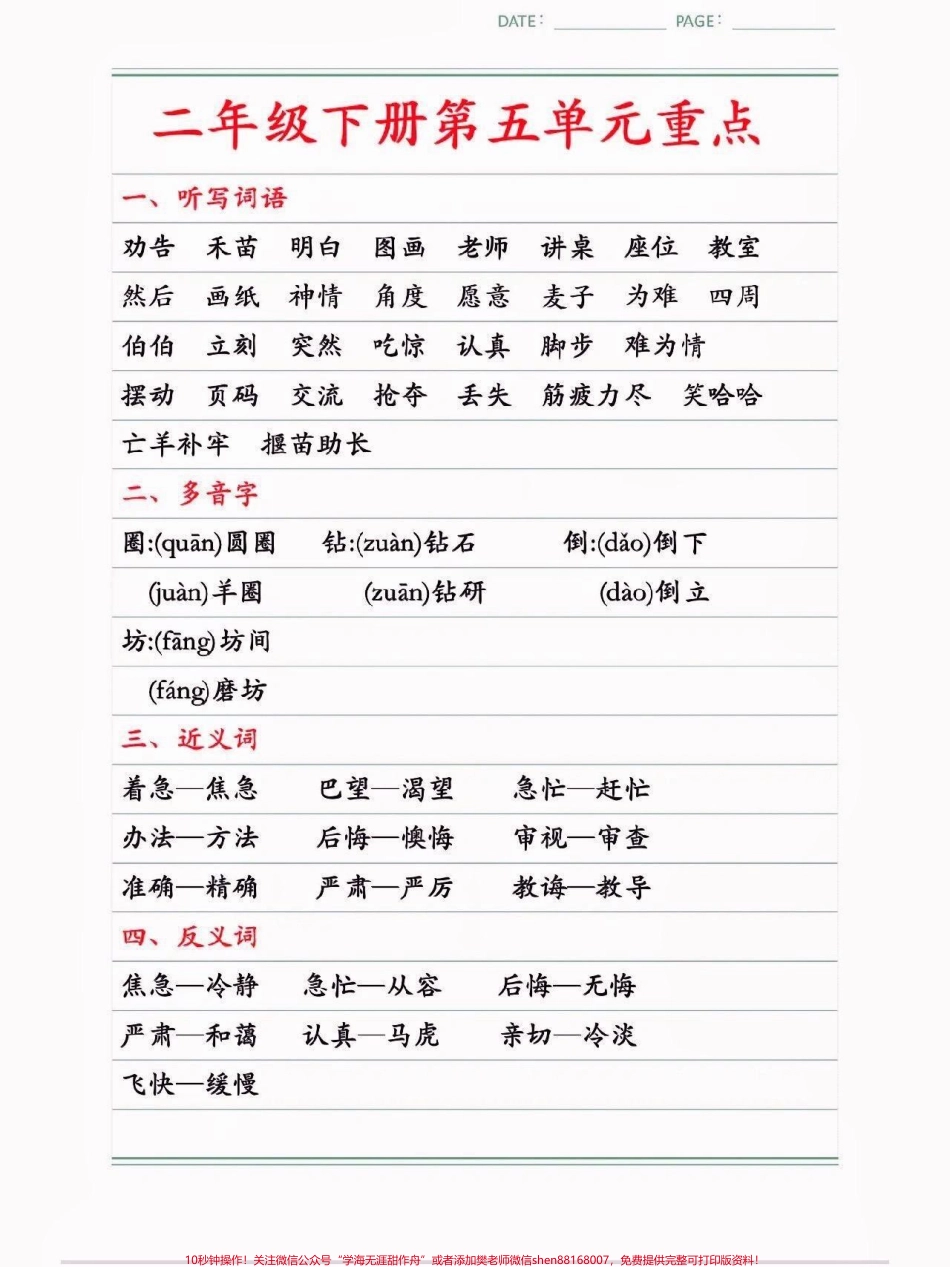 DATE: PAGE:
二年级下册第五单元重点
一、听写词语
劝告 禾苗 明白 图画 老师 讲桌 座位 教室
然后 画纸 神情 角度 愿意 麦子 为难 四周
伯伯 立刻 突然 吃惊 认真 脚步 难为情
摆动 页码 交流 抢夺 丢失 筋疲力尽 笑哈哈
亡羊补牢 揠苗助长
二、多音字
圈:(quān)圆圈 钻:(zuàn)钻石 倒:(dǎo)倒下
(juàn)羊圈 (zuān)钻研 (dào)倒立
坊:(fāng)坊间
(fáng)磨坊
三、近义词
着急—焦急 巴望—渴望 急忙—赶忙
办法—方法 后悔—懊悔 审视—审查
准确—精确 严肃—严厉 教诲—教导
四、反义词
焦急—冷静 急忙—从容 后悔—无悔
严肃—和蔼 认真—马虎 亲切—冷淡
飞快—缓慢
10秒钟操作！关注微信公众号“学海无涯甜作舟”或者添加樊老师微信shen88168007，免费提供完整可打印版资料！